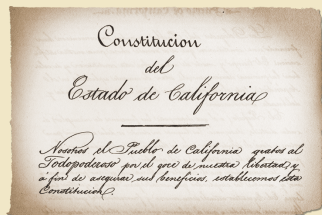 Constitucion
del
Estado de California
Nosotros el Pueblo de California gratos al
Todopoderoso por el goce de nuestra libertad, y
á fin de asegurar sus beneficios, establecemos esta
Constitucion.